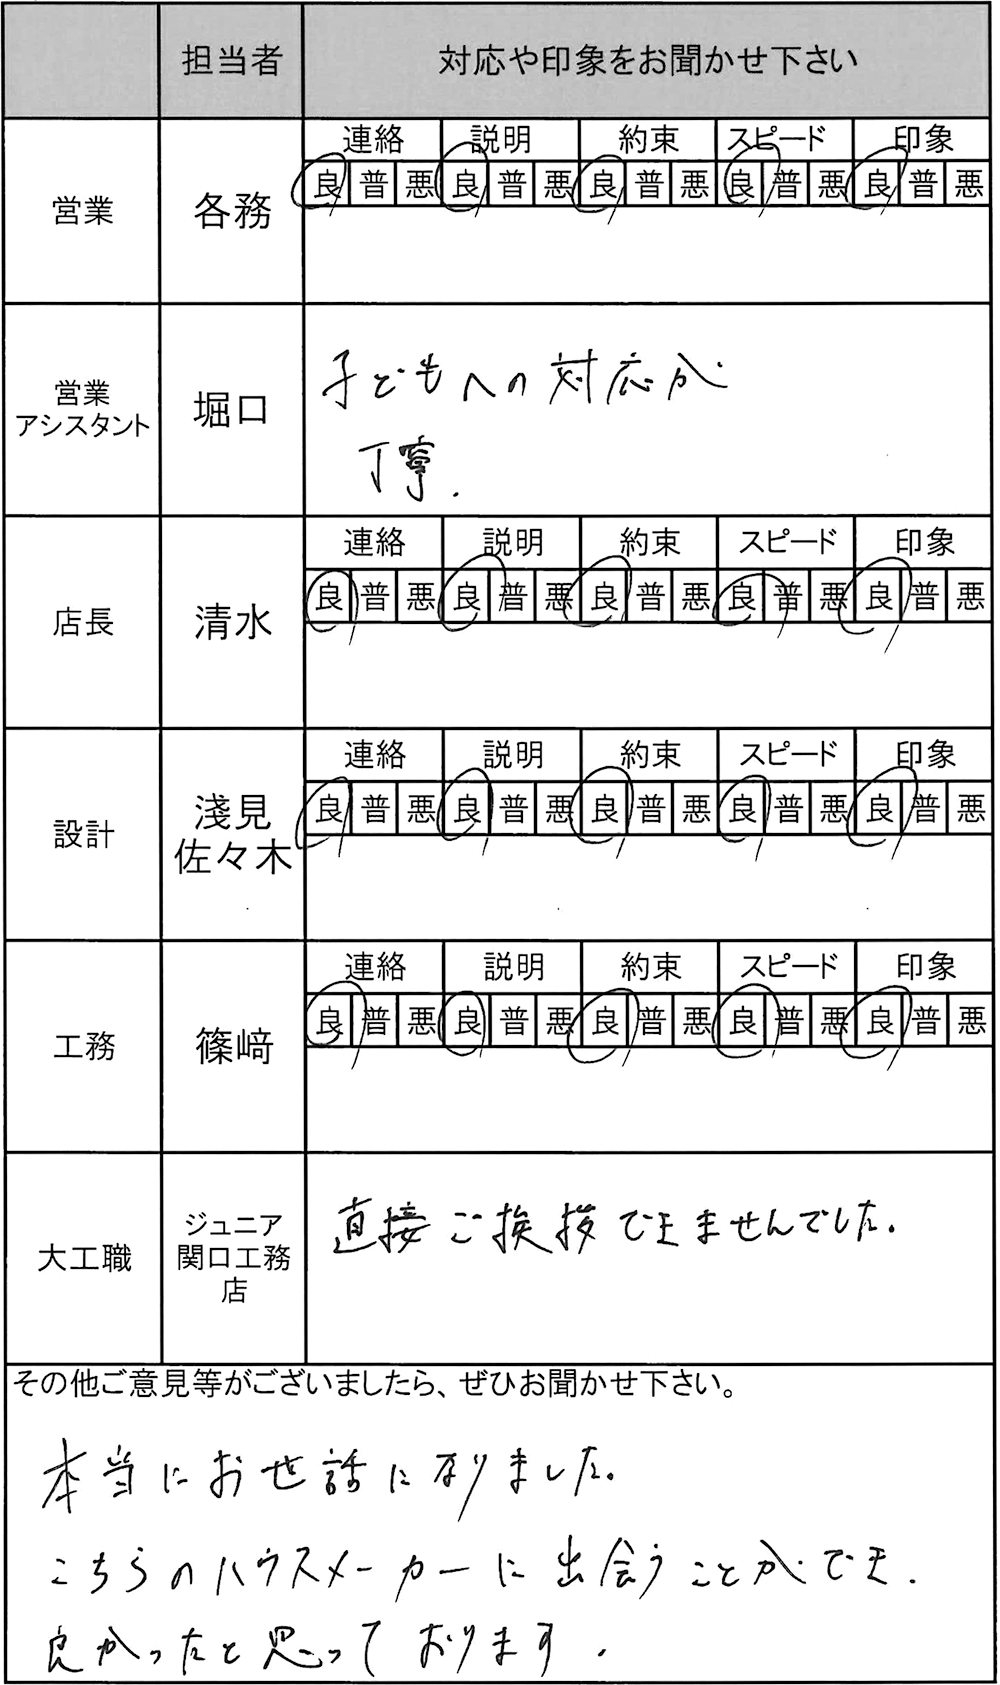 担当者 対応や印象をお聞かせ下さい
連絡 説明 約束 スピード 印象
良 普 悪 良 普 悪 良 普 悪 良 普 悪 良 普 悪
営業 各務
営業
アシスタント
堀口
子どもへの対応が
丁寧.
連絡 説明 約束 スピード 印象
良 普 悪 良 普 悪 良 普 悪 良 普 悪 良 普 悪
店長 清水
連絡 説明 約束 スピード 印象
良 普 悪 良 普 悪 良 普 悪 良 普 悪 良 普 悪
設計
淺見
佐々木
連絡 説明 約束 スピード 印象
良 普 悪 良 普 悪 良 普 悪 良 普 悪 良 普 悪
工務 篠﨑
大工職
ジュニア
関口工務
店
直接ご挨拶できませんでした.
その他ご意見等がございましたら、ぜひお聞かせ下さい。
本当にお世話になりました。
こちらのハウスメーカーに出会うことができ.
良かったと思っております.